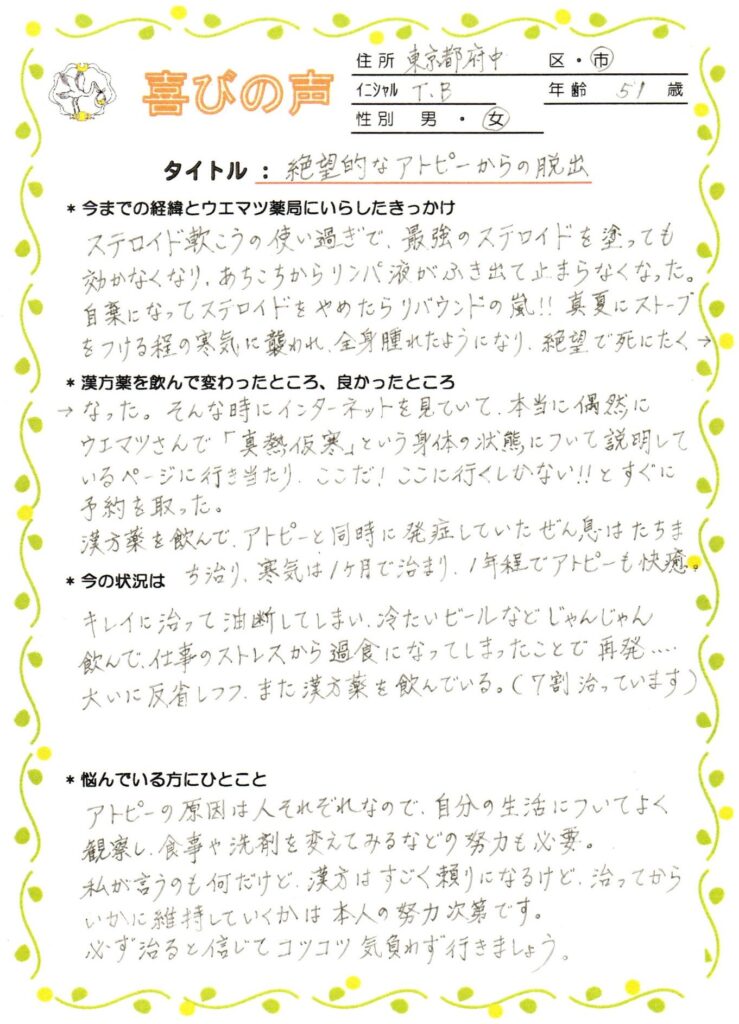 喜びの声
住所 東京都府中 区・市
イニシャル T.B 年齢 51 歳
性別 男・女
タイトル：絶望的なアトピーからの脱出
* 今までの経緯とウエマツ薬局にいらしたきっかけ
ステロイド軟こうの使い過ぎで、最強のステロイドを塗っても
効かなくなり、あちこちからリンパ液がふき出て止まらなくなった。
自棄になってステロイドをやめたらリバウンドの嵐!! 真夏にストーブ
をつける程の寒気に襲われ、全身腫れたようになり、絶望で死にたく→
* 漢方薬を飲んで変わったところ、良かったところ
→なった。そんな時にインターネットを見ていて、本当に偶然に
ウエマツさんで「真熱仮寒」という身体の状態について説明して
いるページに行き当たり、ここだ！ここに行くしかない!!とすぐに
予約を取った。
漢方薬を飲んで、アトピーと同時に発症していたぜん息はたちま
ち治り、寒気は1ヶ月で治まり、1年程でアトピーも快癒。
* 今の状況は
キレイに治って油断してしまい、冷たいビールなどじゃんじゃん
飲んで、仕事のストレスから過食になってしまったことで再発……
大いに反省しつつ、また漢方薬を飲んでいる。(7割治っています)
* 悩んでいる方にひとこと
アトピーの原因は人それぞれなので、自分の生活についてよく
観察し、食事や洗剤を変えてみるなどの努力も必要。
私が言うのも何だけど、漢方はすごく頼りになるけど、治ってから
いかに維持していくかは本人の努力次第です。
必ず治ると信じてコツコツ気負わず行きましょう。